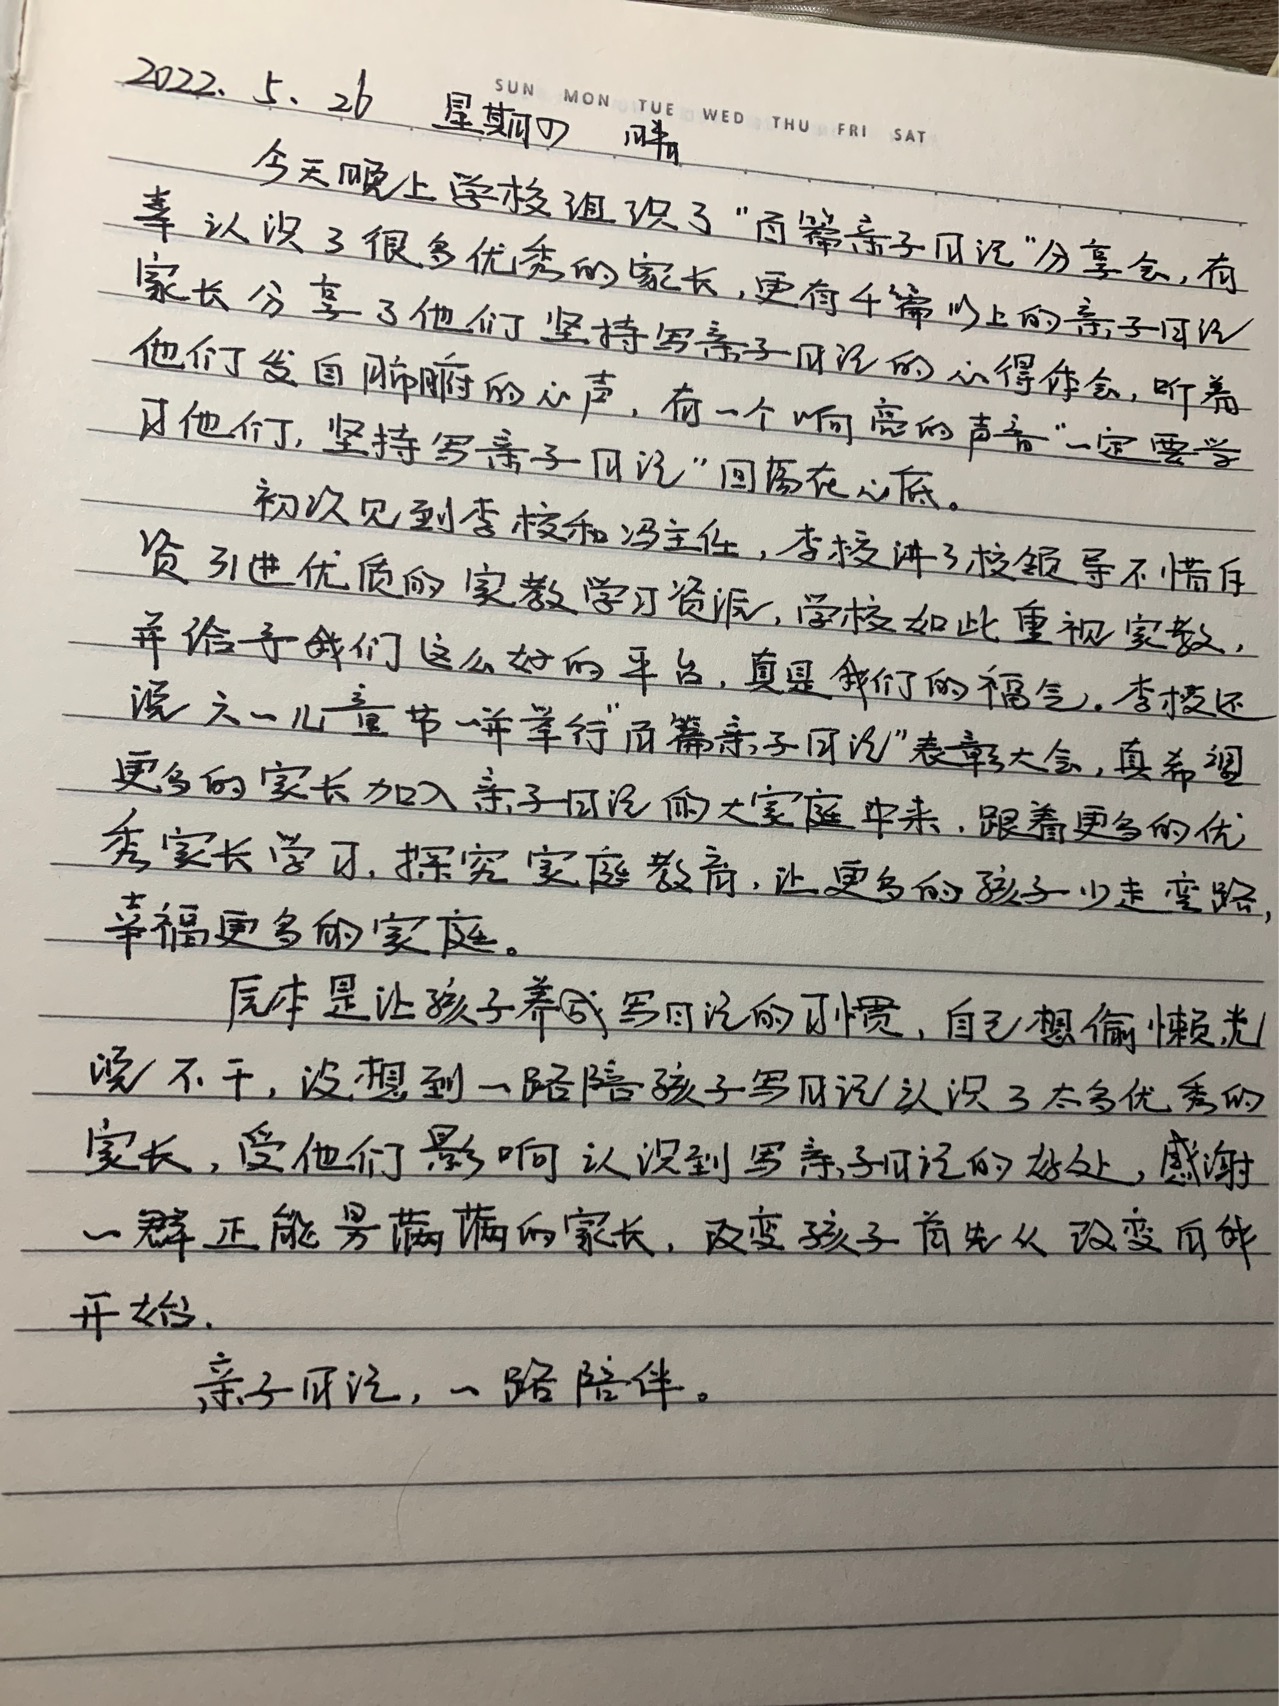 SUN MON TUE WED THU FRI SAT
2022.5.26 星期四 晴
今天晚上学校组织了“百篇亲子日记”分享会,有
幸认识了很多优秀的家长,更有千篇以上的亲子日记
家长分享了他们坚持写亲子日记的心得体会,听着
他们发自肺腑的心声,有一个响亮的声音“一定要学
习他们,坚持写亲子日记”回荡在心底。
初次见到李校和冯主任,李校讲了校领导不惜斥
资引进优质的家教学习资源,学校如此重视家教,
并给予我们这么好的平台,真是我们的福气。李校还
说六一儿童节一并举行“百篇亲子日记”表彰大会,真希望
更多的家长加入亲子日记的大家庭中来,跟着更多的优
秀家长学习,探究家庭教育,让更多的孩子少走弯路,
幸福更多的家庭。
原本是让孩子养成写日记的习惯,自己想偷懒光
说不干,没想到一路陪孩子写日记认识了太多优秀的
家长,受他们影响认识到写亲子日记的好处,感谢
一群正能量满满的家长,改变孩子首先从改变自我
开始.
亲子日记,一路陪伴。